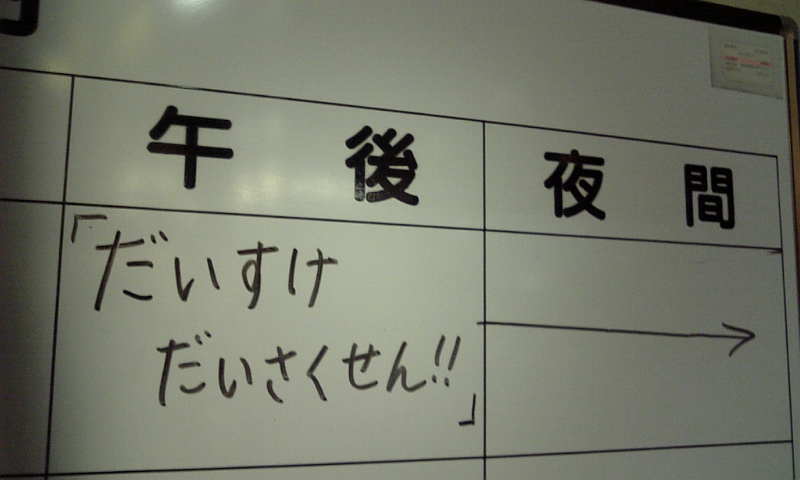 午後 夜間
「だいすけ
だいさくせん!!」